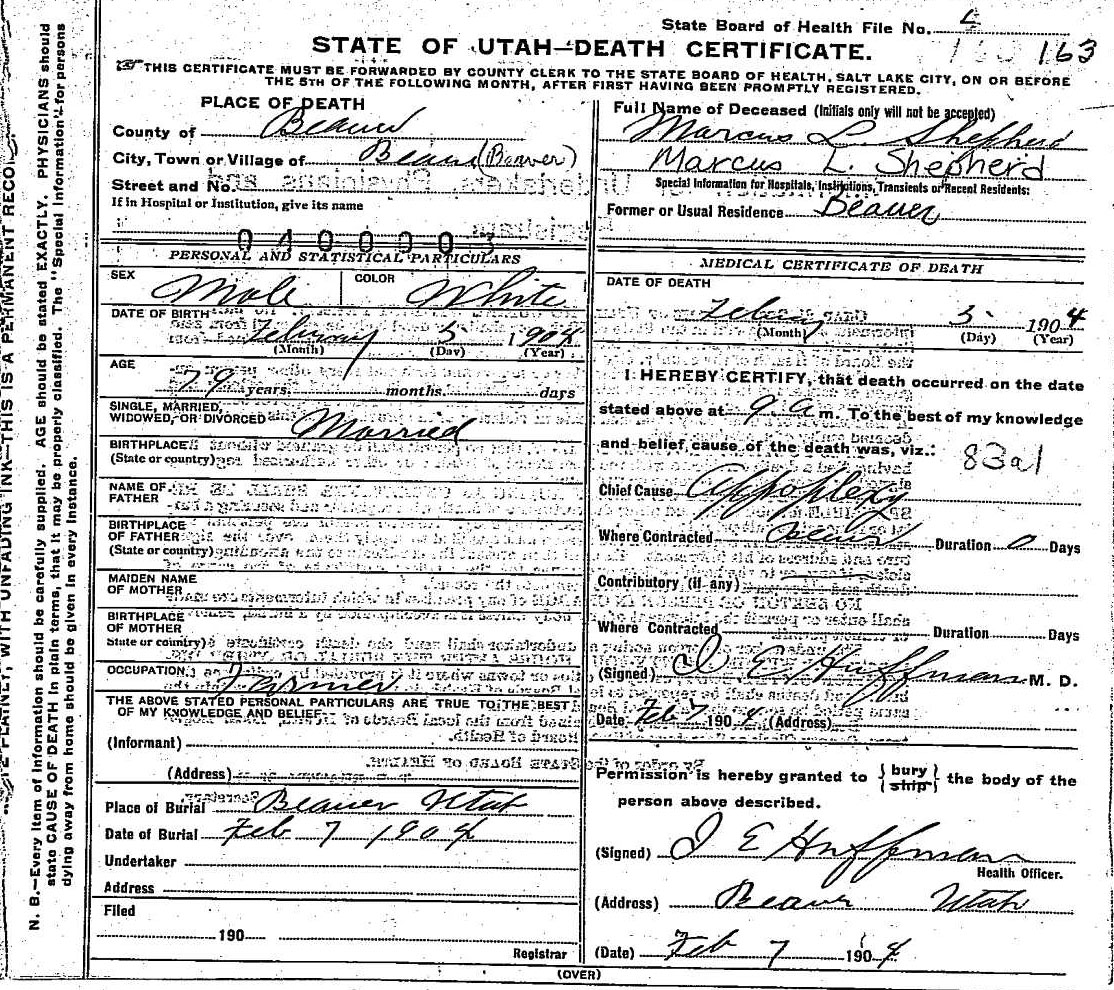 State Board of Health File No. 4
163
STATE OF UTAH—DEATH CERTIFICATE.
THIS CERTIFICATE MUST BE FORWARDED BY COUNTY CLERK TO THE STATE BOARD OF HEALTH, SALT LAKE CITY, ON OR BEFORE
THE 5TH OF THE FOLLOWING MONTH, AFTER FIRST HAVING BEEN PROMPTLY REGISTERED.
PLACE OF DEATH
County of Beaver
City, Town or Village of Beaver (Beaver)
Street and No.
If in Hospital or Institution, give its name
0400003
PERSONAL AND STATISTICAL PARTICULARS
SEX Male COLOR White
DATE OF BIRTH
February 5 1904
(Month) (Day) (Year)
AGE
79 years months days
SINGLE, MARRIED,
WIDOWED, OR DIVORCED Married
BIRTHPLACE
(State or country)
NAME OF
FATHER
BIRTHPLACE
OF FATHER
(State or country)
MAIDEN NAME
OF MOTHER
BIRTHPLACE
OF MOTHER
State or country)
OCCUPATION Farmer
THE ABOVE STATED PERSONAL PARTICULARS ARE TRUE TO THE BEST
OF MY KNOWLEDGE AND BELIEF
(Informant)
(Address)
Place of Burial Beaver Utah
Date of Burial Feb 7 1904
Undertaker
Address
Filed
190
Registrar
Full Name of Deceased (Initials only will not be accepted)
Marcus L. Shepherd
Marcus L. Shepherd
Special Information for Hospitals, Institutions, Transients or Recent Residents:
Former or Usual Residence Beaver
MEDICAL CERTIFICATE OF DEATH
DATE OF DEATH
February 5 1904
(Month) (Day) (Year)
I HEREBY CERTIFY, that death occurred on the date
stated above at 9 a m. To the best of my knowledge
and belief cause of the death was, viz.: 83a1
Chief Cause Appoplexy
Where Contracted Beaver Duration 0 Days
Contributory (if any)
Where Contracted Duration Days
(Signed) J E Huffman M. D.
Date Feb 7 1904 (Address)
Permission is hereby granted to { bury ship } the body of the
person above described.
(Signed) J E Huffman
Health Officer.
(Address) Beaver Utah
(Date) Feb 7 1904
(OVER)
N. B.—Every item of information should be carefully supplied. AGE should be stated EXACTLY. PHYSICIANS should
state CAUSE OF DEATH in plain terms, that it may be properly classified. The "Special Information" for persons
dying away from home should be given in every instance.
PLAINLY, WITH UNFADING INK—THIS IS A PERMANENT